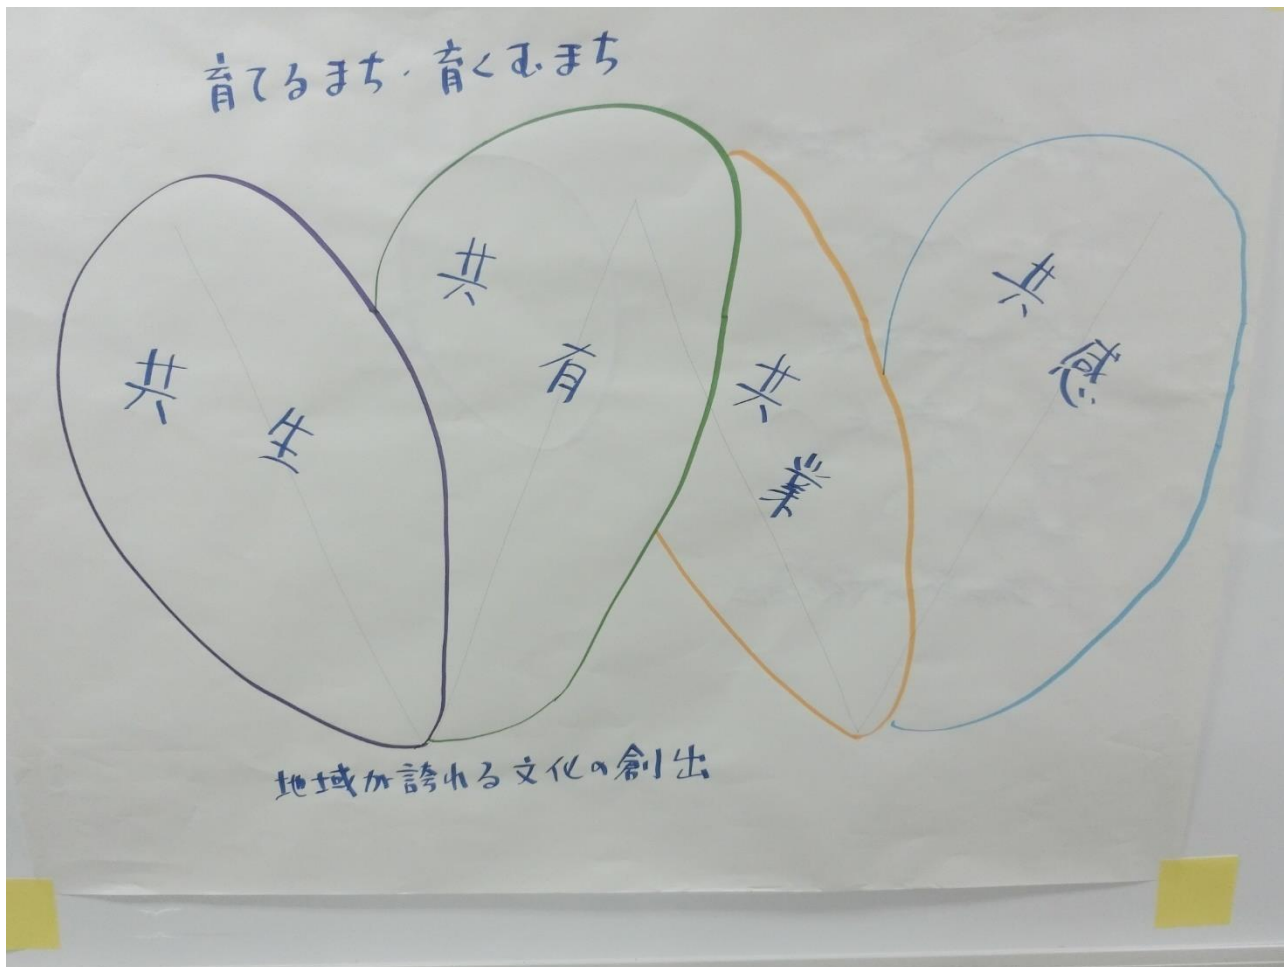 育てるまち・育くむまち
共生
共有
共業
共感
地域が誇れる文化の創出